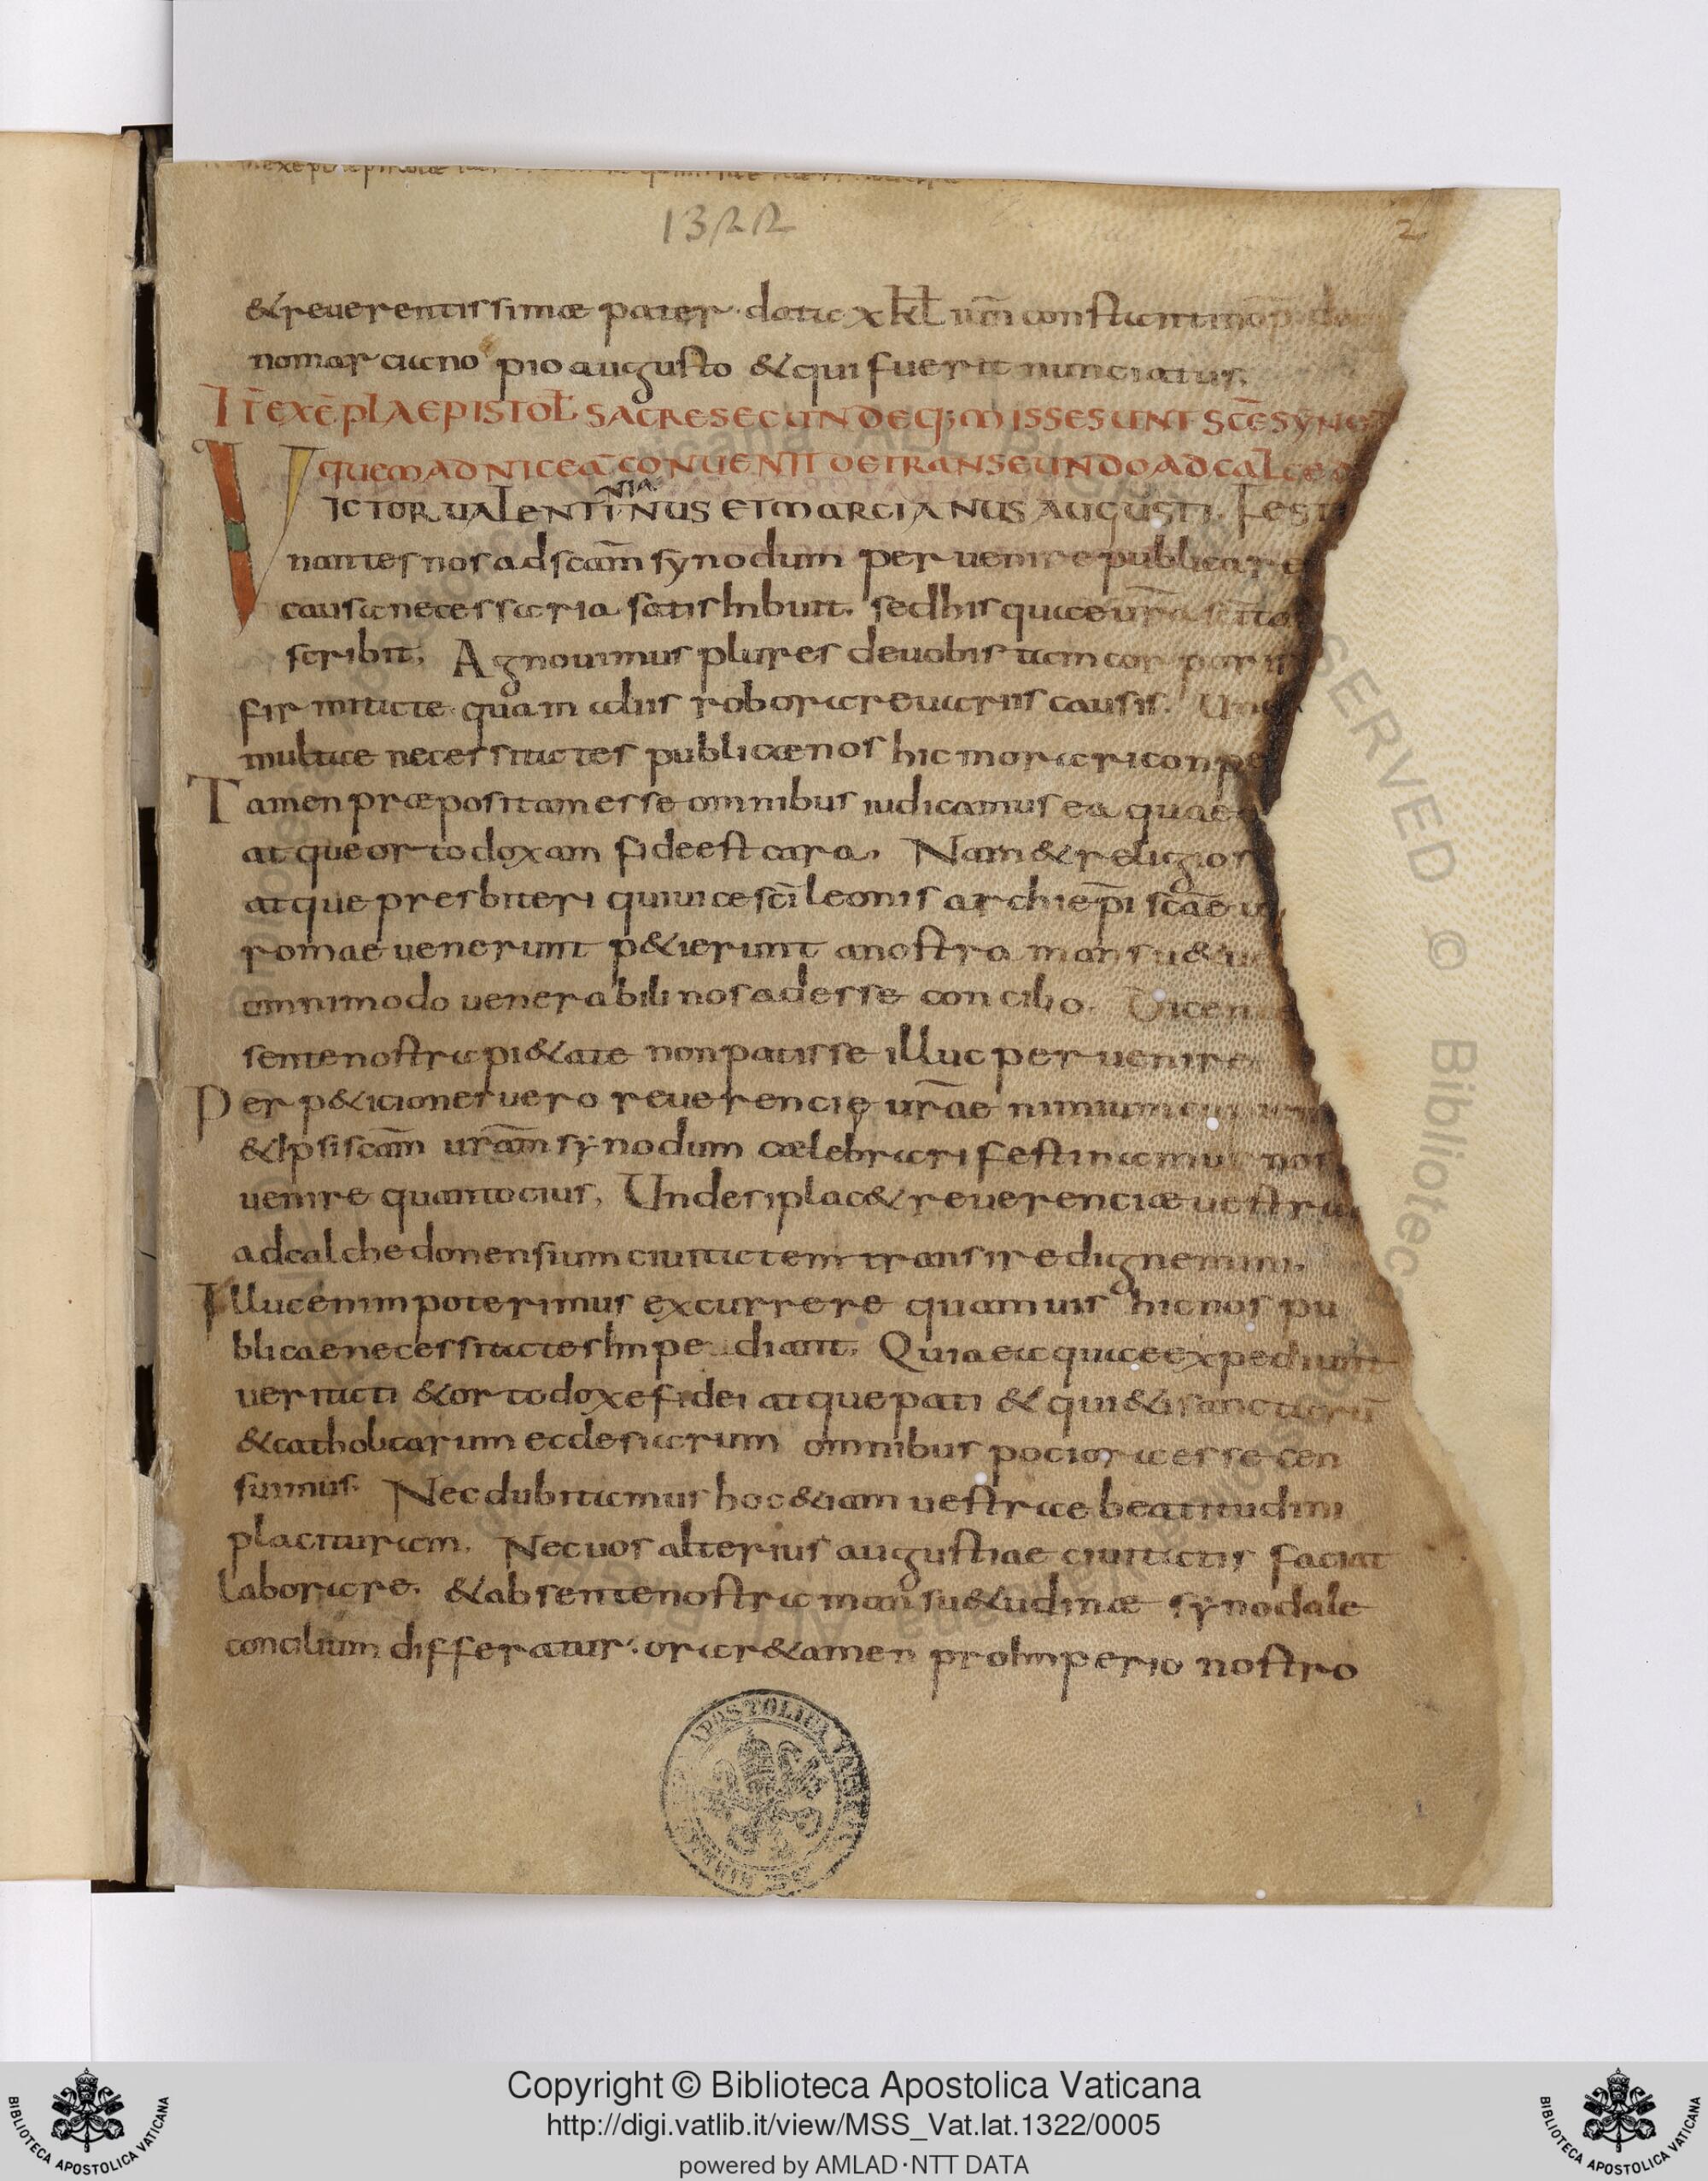 1322
2
&reuerentissimæ pater. data x kl̄ iun̄ constantinop̄. do
nomarciano pio augusto & qui fuerit nunciatus.
IT̄ EXĒPLA EPISTOL̄ SACRE SECUNDE Q; MISSE SUNT SC̄E SYNO
QUEM AD NICEĀ CONUENIT DE TRANSEUNDO AD CALCED
VICTOR UALENTINUS ET MARCIANUS AUGUSTI. FESTI
NIA
nantes nos ad scam̄ synodum peruenire publicare
causa necessaria satis Inbuit. sed his quae ur̄a sc̄ita
scribit, Agnouimus plures deuobis tam corporis
firmitate quam aliis roborare uariis causis. Unde
multae necessitates publicæ nos hic morari conpe
Tamen præpositam esse omnibus iudicamus ea quae
atque ortodoxam fide est cara, Nam & religios
atque presbiteri qui uice sc̄i leonis archiep̄i sc̄ae
romae uenerunt p&ierunt anostra mansu&u
omnimodo uenerabili nos adesse concilio. Dicen
sente nostra pi&ate non patisse illuc peruenire
Per p&iciones uero reuerencię ur̄ae nimium
&Ipsi scam̄ ur̄am synodum cælebrari festinamus nos
uenire quantocius, Unde si plac& reuerenciæ uestra
ad calchedonensium ciuitatem transire dignemini.
Illuc enim poterimus excurrere quamuis hic nos pu
blicae necessitates Impediant. Quia ea quae expediunt
ueritati & ortodoxe fidei atque pati & qui&i sanctarū
& catholicarum ecclesiarum omnibus pociora esse cen
suimus. Nec dubitamus hoc &iam uestrae beatitudini
placituram. Nec uos alterius augustiae ciuitatis faciat
laborare. & absente nostra mansu&udinæ synodale
concilium differatur. orar& amen pro Imperio nostro
Copyright © Biblioteca Apostolica Vaticana
http://digi.vatlib.it/view/MSS_Vat.lat.1322/0005
powered by AMLAD·NTT DATA
BIBLIOTECA APOSTOLICA VATICANA
BIBLIOTECA APOSTOLICA VATICANA